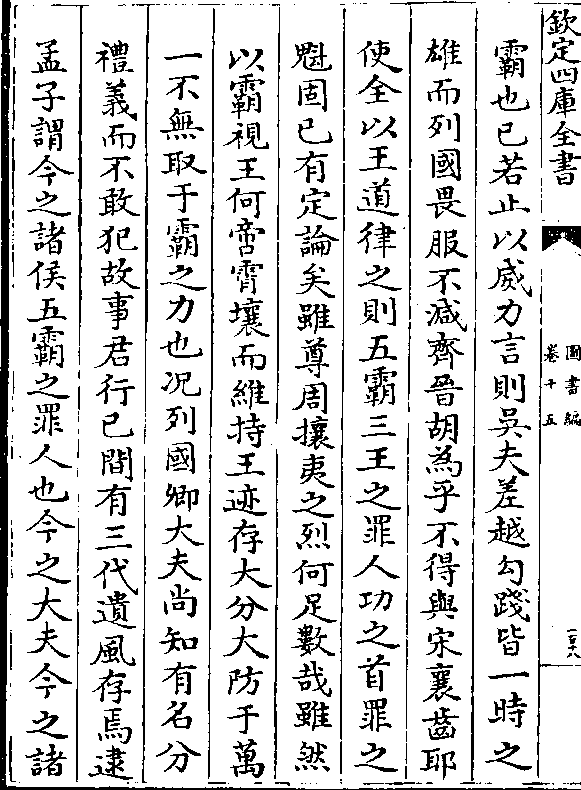 欽定四庫全書
圖書編
卷十五
一百六
霸也已若止以威力言則吳夫差越勾踐皆一時之
雄而列國畏服不減齊晉胡為乎不得與宋襄齒耶
使全以王道律之則五霸三王之罪人功之首罪之
魁固已有定論矣雖尊周攘夷之烈何足數哉雖然
以霸視王何啻霄壤而維持王迹存大分大防于萬
一不無取于霸之力也况列國卿大夫尚知有名分
禮義而不敢犯故事君行已間有三代遺風存焉逮
孟子謂今之諸侯五霸之罪人也今之大夫今之諸